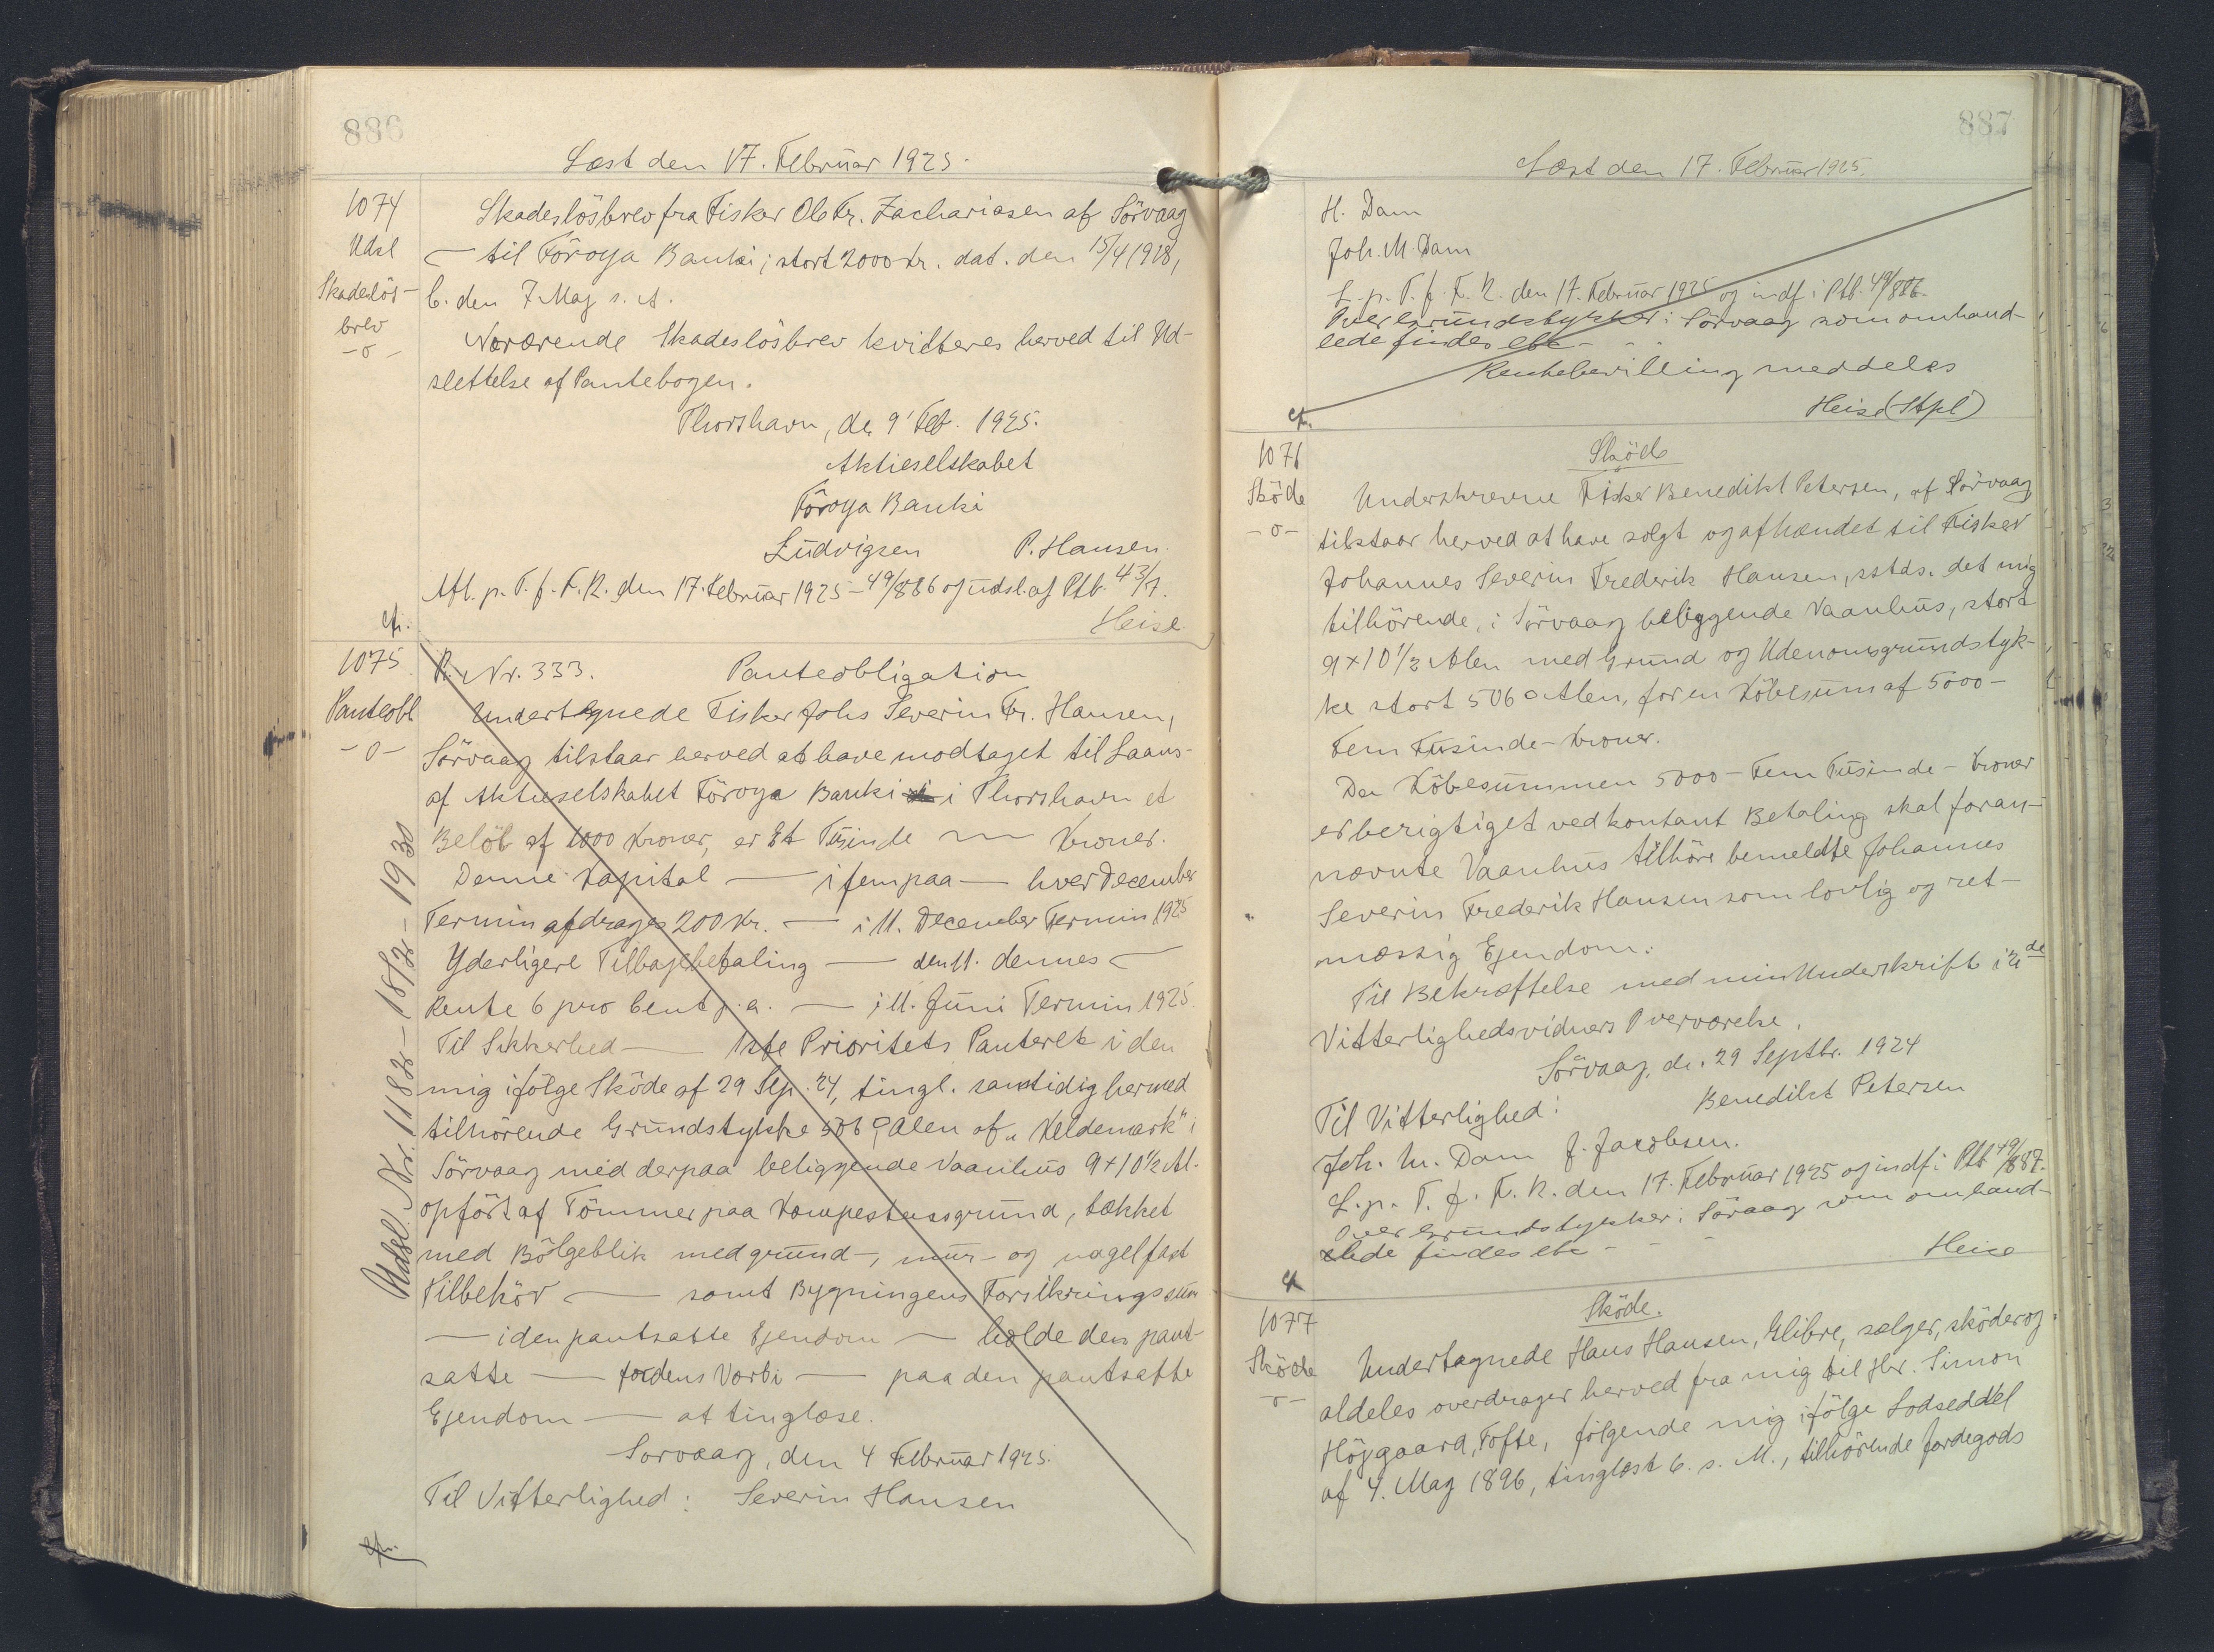 886
Læst den 17. Februar 1925.
1074
Udsl
Skadeslös-
brev
-o-
Skadeslösbrev fra Fisker Ole Fr. Zachariasen af Sörvaag
— til Föroya Banki, stort 2000 Kr. dat. den 15/4 1918,
l. den 7 Maj s. A.
Nærværende Skadeslösbrev kvitteres herved til Ud-
slettelse af Pantebogen.
Thorshavn, de 9' Feb. 1925.
Aktieselskabet
Föroya Banki
Ludvigsen P. Hansen.
Afl. p. T. f. F. R. den 17. Februar 1925 - 49/886 og udsl. af Ptb. 43/7.
Heise
cfr.
1075
Panteobl
-o-
R. Nr. 333. Panteobligation
Undertegnede Fisker Johs Severin Fr. Hansen,
Sörvaag tilstaar herved at have modtaget til Laans-
af Aktieselskabet Föroya Banki i Thorshavn et
Belöb af 1000 Kroner, er Et Tusinde — Kroner.
Denne Kapital — i fem paa — hver December
Termin afdrages 200 Kr. — i 11. December Termin 1925
Yderligere Tilbagebetaling — den 11. dennes —
Rente 6 pro Cent p. a. — i 11. Juni Termin 1925.
Til Sikkerhed — 1ste Prioritets Panteret i den
mig ifölge Sköde af 29 Sep. 24, tingl. samtidig hermed
tilhörende Grundstykke 506 □ Alen af „Keldemark" i
Sörvaag med derpaa beliggende Vaanhus 9 x 10 1/2 Al.
opfört af Tömmer paa Kampestensgrund, tækket
med Bölgeblik med grund-, mur- og nagelfast
Tilbehör — samt Bygningens Forsikringssum
— i den pantsatte Ejendom — holde den pant-
satte — fordens Værdi — paa den pantsatte
Ejendom — at tinglæse.
Sorvaag, den 4 Februar 1925.
Til Vitterlighed: Severin Hansen
cfr.
Udsl. Nr. 1182 - 18/2 - 1930
887
Læst den 17. Februar 1925.
H. Dam
Joh. M. Dam
L. p. T. f. F. R. den 17. Februar 1925 og indf. i Ptb. 49/886.
Over Grundstykker i Sörvaag som omhand-
lede findes ebc - - -
Rentebevilling meddeles
Heise (Stpl)
cfr.
1076
Sköde
-o-
Sköde
Underskrevne Fisker Benedikt Petersen, af Sörvaag
tilstaar herved at have solgt og afhændet til Fisker
Johannes Severin Frederik Hansen, sstds. det mig
tilhörende, i Sörvaag beliggende Vaanhus, stort
9 x 10 1/2 Alen med Grund og Udenomsgrundstyk-
ke stort 506 □ Alen, for en Köbesum af 5000 -
Fem Tusinde - Kroner.
Da Köbesummen 5000 - Fem Tusinde - Kroner
er berigtiget ved kontant Betaling skal foran-
nævnte Vaanhus tilhöre bemeldte Johannes
Severin Frederik Hansen som lovlig og ret-
mæssig Ejendom.
Til Bekræftelse med min Underskrift i 2de
Vitterlighedsvidners Overværelse.
Sörvaag, d. 29 Septbr. 1924
Til Vitterlighed: Benedikt Petersen
Joh. M. Dam J. Jacobsen.
L. p. T. f. F. R. den 17. Februar 1925 og indf. i Ptb 49/887.
Over Grundstykker i Sörvaag som omhand-
lede findes ebc - - -
Heise
cfr
1077
Sköde
-o-
Sköde.
Undertegnede Hans Hansen, Glibre, sælger, sköder og
aldeles overdrager herved fra mig til Hr. Simon
Höjgaard, Tofte, fölgende mig ifölge Lodseddel
af 4. Maj 1896, tinglæst 6. s. M., tilhörende Jordegods